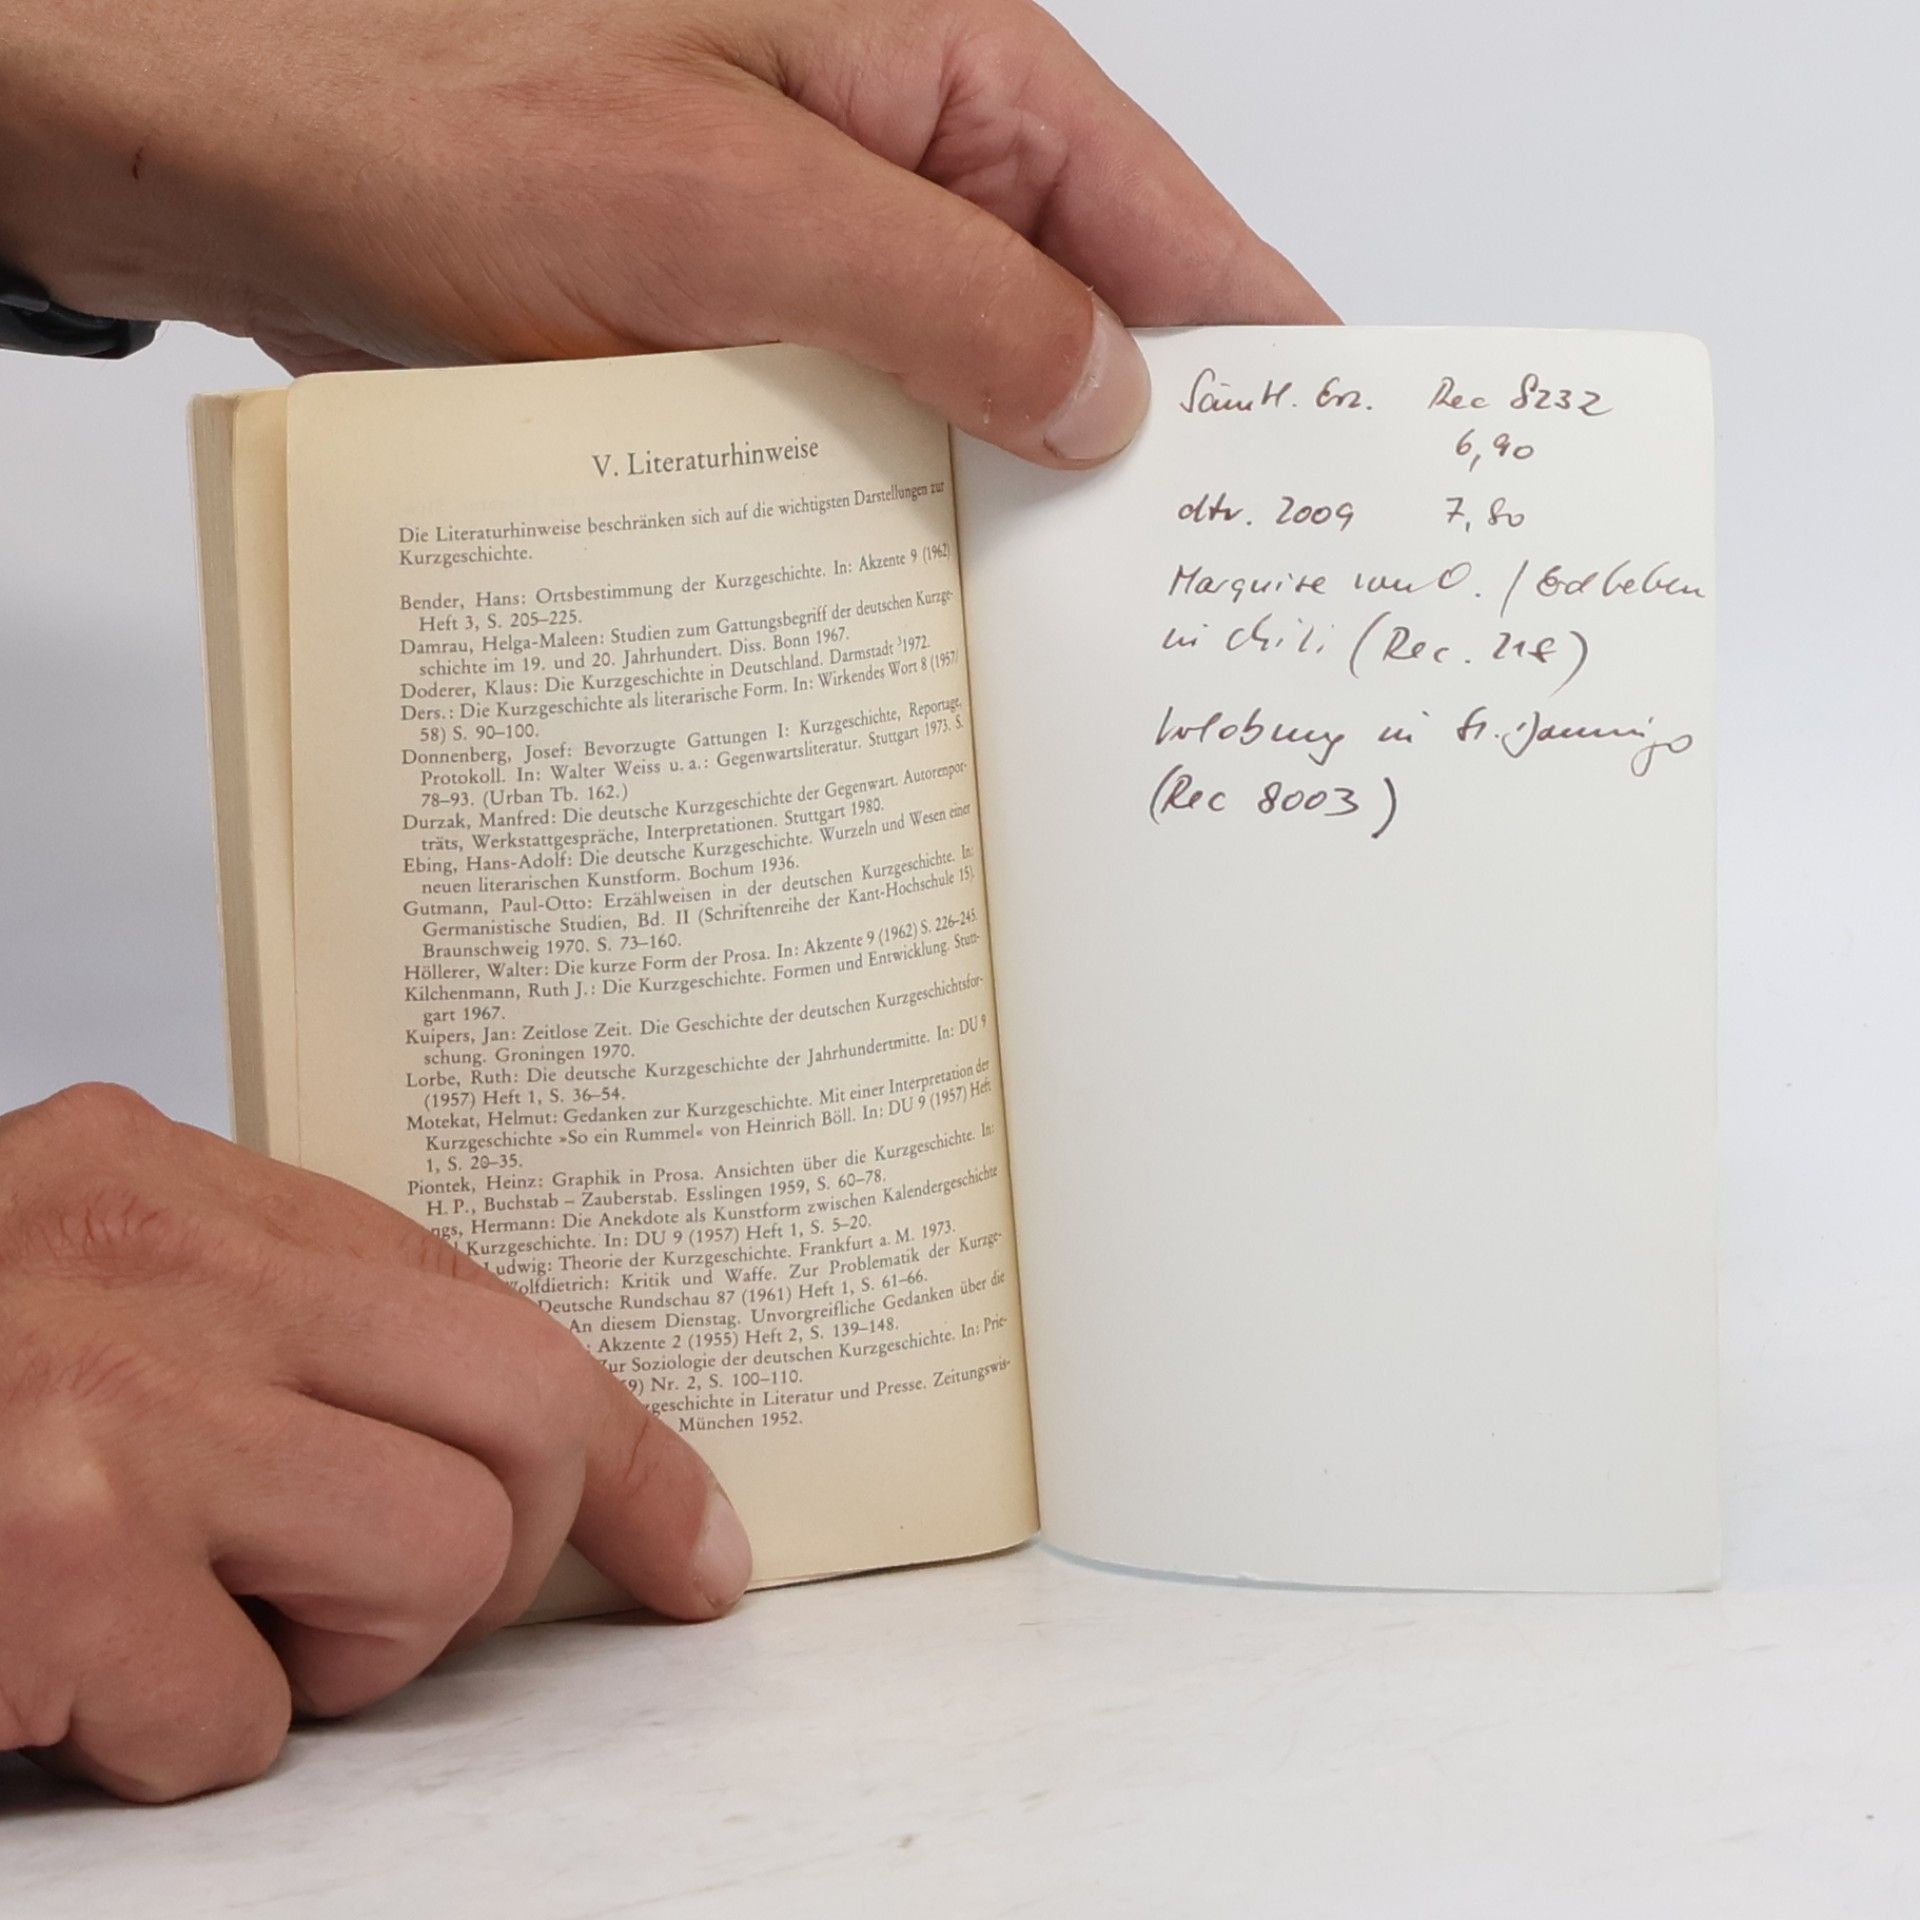 V. Literaturhinweise
Die Literaturhinweise beschränken sich auf die wichtigsten Darstellungen zur
Kurzgeschichte.
Bender, Hans: Ortsbestimmung der Kurzgeschichte. In: Akzente 9 (1962)
Heft 3, S. 205–225.
Damrau, Helga-Maleen: Studien zum Gattungsbegriff der deutschen Kurzge-
schichte im 19. und 20. Jahrhundert. Diss. Bonn 1967.
Doderer, Klaus: Die Kurzgeschichte in Deutschland. Darmstadt ³1972.
Ders.: Die Kurzgeschichte als literarische Form. In: Wirkendes Wort 8 (1957/
58) S. 90–100.
Donnenberg, Josef: Bevorzugte Gattungen I: Kurzgeschichte, Reportage,
Protokoll. In: Walter Weiss u. a.: Gegenwartsliteratur. Stuttgart 1973. S.
78–93. (Urban Tb. 162.)
Durzak, Manfred: Die deutsche Kurzgeschichte der Gegenwart. Autorenpor-
träts, Werkstattgespräche, Interpretationen. Stuttgart 1980.
Ebing, Hans-Adolf: Die deutsche Kurzgeschichte. Wurzeln und Wesen einer
neuen literarischen Kunstform. Bochum 1936.
Gutmann, Paul-Otto: Erzählweisen in der deutschen Kurzgeschichte. In:
Germanistische Studien, Bd. II (Schriftenreihe der Kant-Hochschule 15).
Braunschweig 1970. S. 73–160.
Höllerer, Walter: Die kurze Form der Prosa. In: Akzente 9 (1962) S. 226–245.
Kilchenmann, Ruth J.: Die Kurzgeschichte. Formen und Entwicklung. Stutt-
gart 1967.
Kuipers, Jan: Zeitlose Zeit. Die Geschichte der deutschen Kurzgeschichtsfor-
schung. Groningen 1970.
Lorbe, Ruth: Die deutsche Kurzgeschichte der Jahrhundertmitte. In: DU 9
(1957) Heft 1, S. 36–54.
Motekat, Helmut: Gedanken zur Kurzgeschichte. Mit einer Interpretation der
Kurzgeschichte »So ein Rummel« von Heinrich Böll. In: DU 9 (1957) Heft
1, S. 20–35.
Piontek, Heinz: Graphik in Prosa. Ansichten über die Kurzgeschichte. In:
H. P., Buchstab – Zauberstab. Esslingen 1959, S. 60–78.
ngs, Hermann: Die Anekdote als Kunstform zwischen Kalendergeschichte
Kurzgeschichte. In: DU 9 (1957) Heft 1, S. 5–20.
Ludwig: Theorie der Kurzgeschichte. Frankfurt a. M. 1973.
Wolfdietrich: Kritik und Waffe. Zur Problematik der Kurzge-
Deutsche Rundschau 87 (1961) Heft 1, S. 61–66.
An diesem Dienstag. Unvorgreifliche Gedanken über die
: Akzente 2 (1955) Heft 2, S. 139–148.
Zur Soziologie der deutschen Kurzgeschichte. In: Prie-
9) Nr. 2, S. 100–110.
geschichte in Literatur und Presse. Zeitungswis-
München 1952.
Sämtl. Erz. Rec 8232
6,90
dtv. 2009 7,80
Marquise von O. / Erdbeben
in Chili (Rec. 218)
Verlobung in St. Domingo
(Rec 8003)